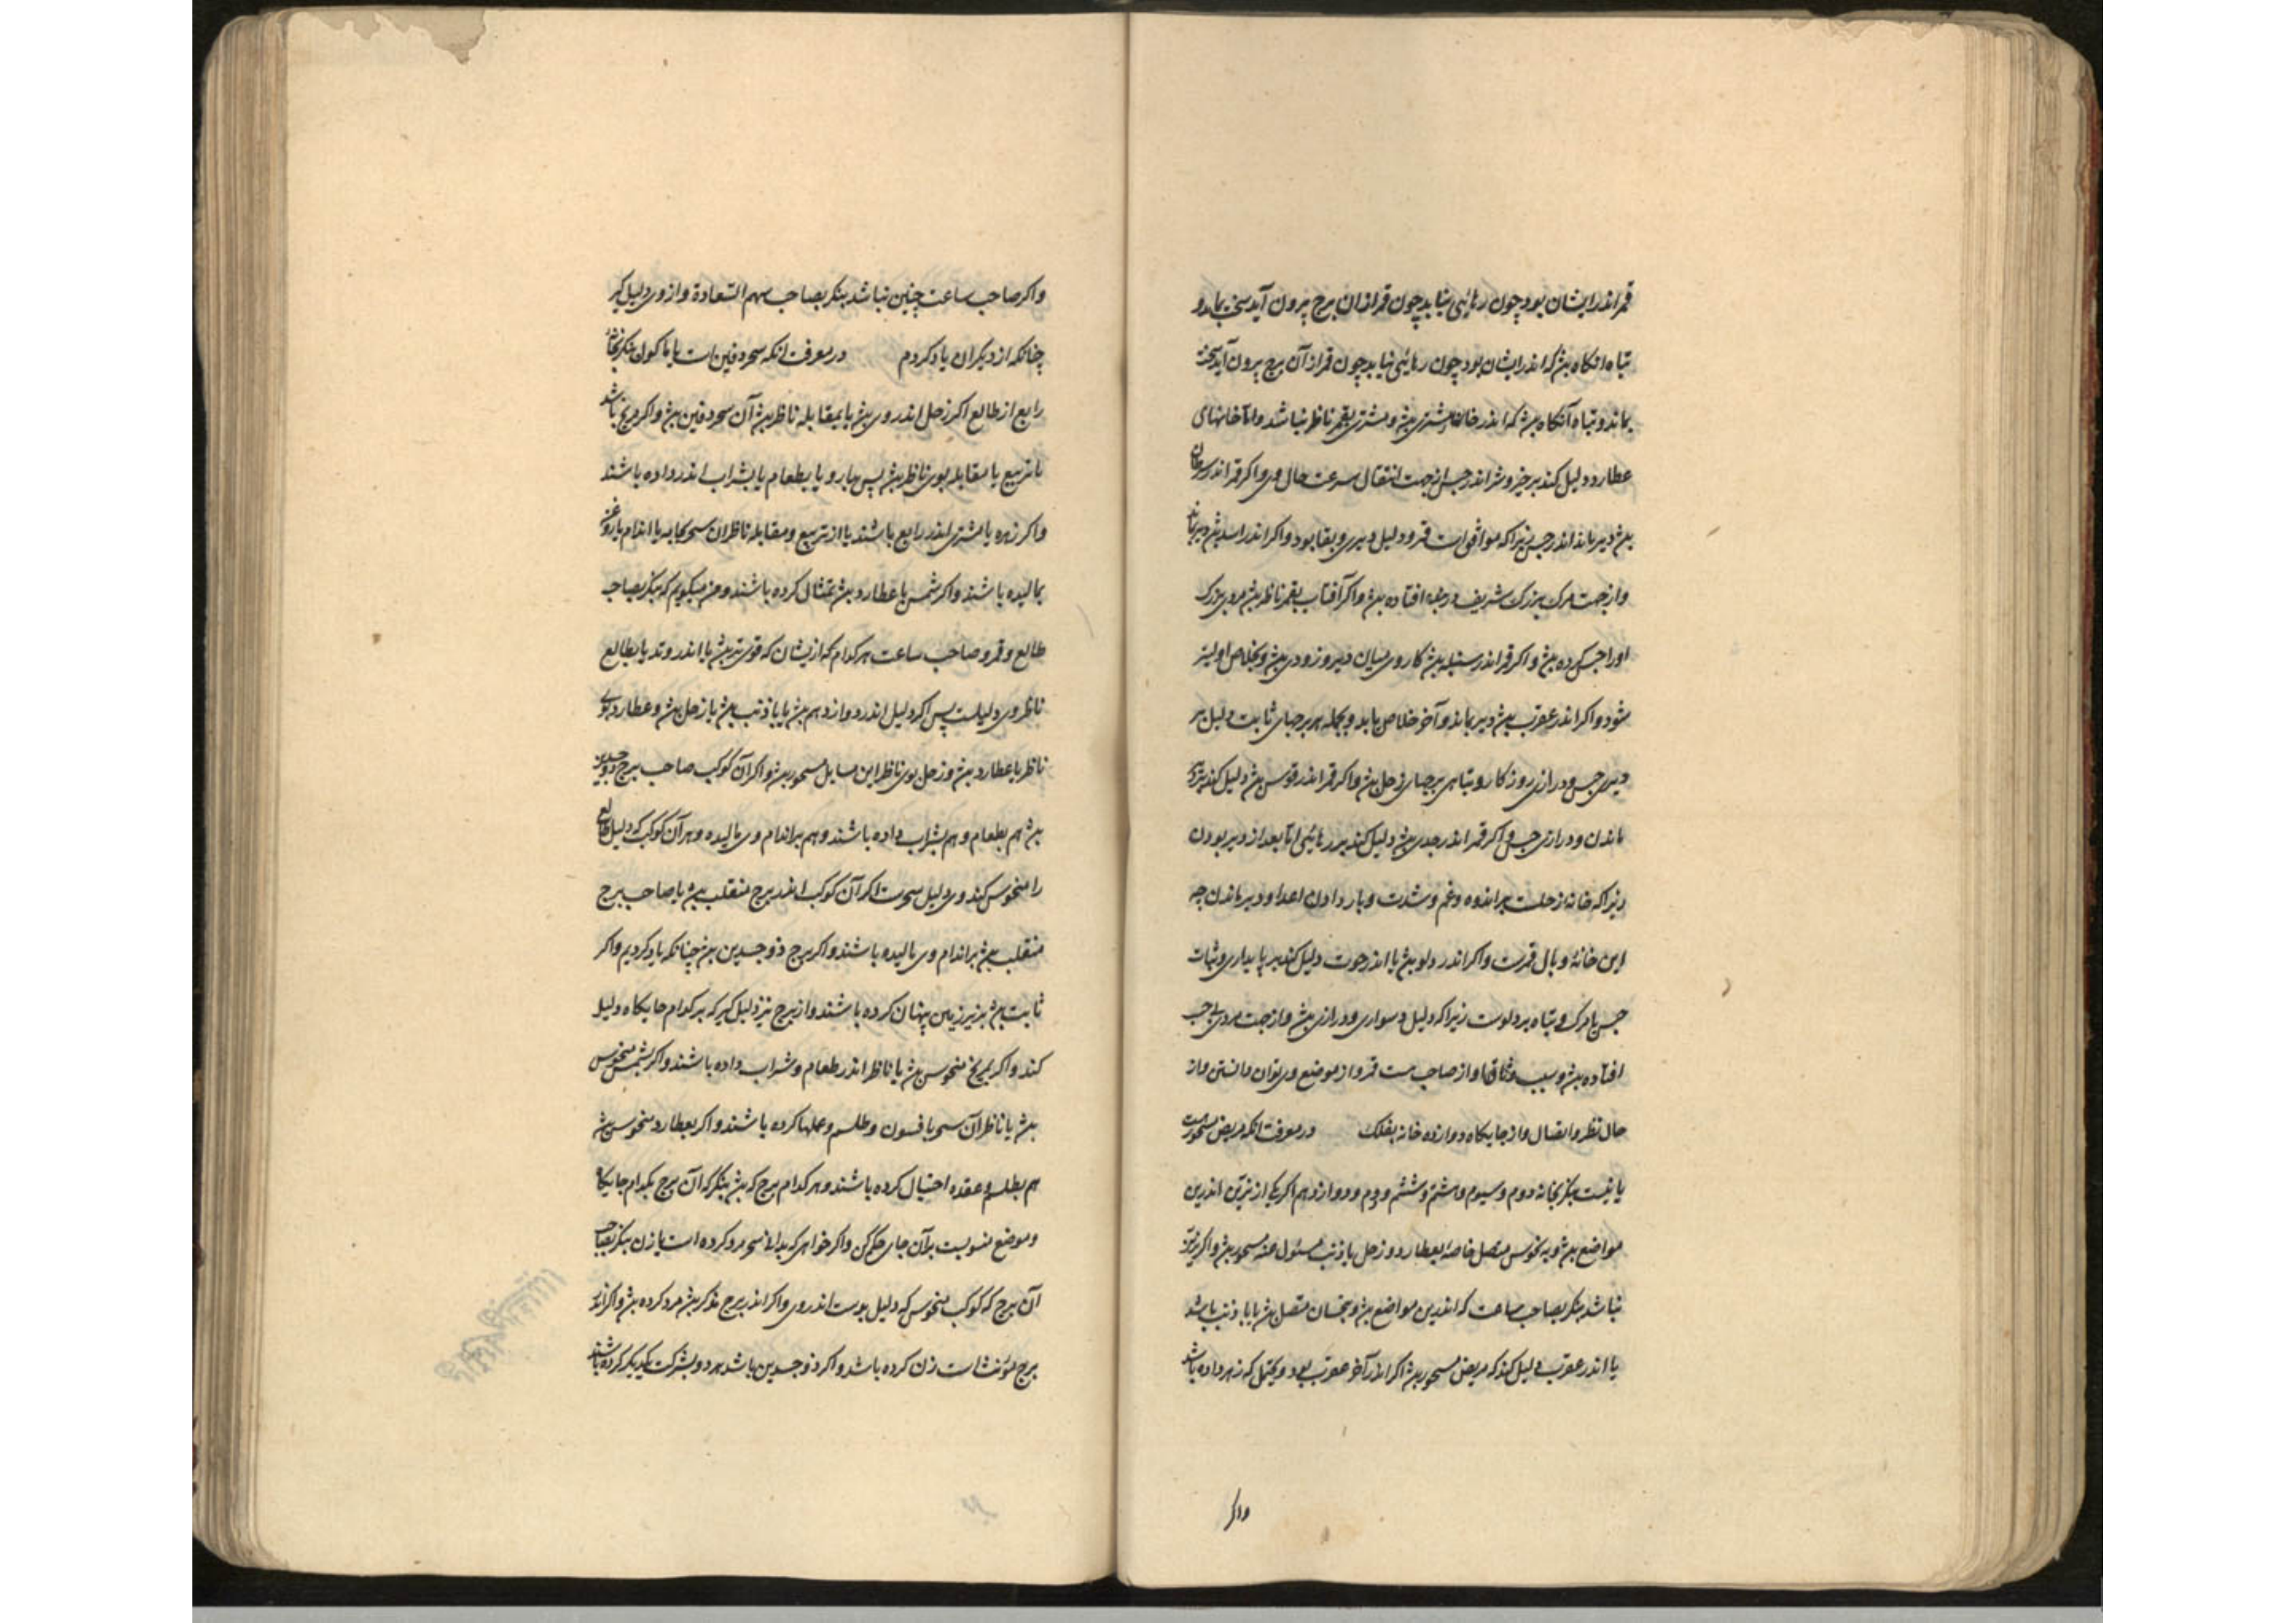 قمر اندر ایشان بود چون رهائی نیابد چون قمر ازان برج بیرون آید سخت بماند و
تباه آنکاه بش که اندر ایشان بود چون رهائی نیابد چون قمر از آن برج بیرون آید سخت
بماند و تباه آنکاه بش که اندر خانهاء مشتری بش و مشتری بقمر ناظر نباشد و اما خانهای
عطارد دلیل کند بر خیر و شر اندر حبس از جهت انتقال سرعت حال وی و اکر قمر اندر سرطان
بش دیر ماند اندر حبس زیرا که موافق است قمر و دلیل دیری و بقا بود و اکر اندر اسد بش دیر بماند
و از جهت مرک بزرک شریف در حبس افتاده بش و اکر آفتاب بقمر ناظر بش مردی بزرک
او را حبس کرده بش و اکر قمر اندر سنبله بش کار وی میان دیر و زودی بش و بخلاص اولیتر
شود و اکر اندر عقرب بش دیر بماند و آخر خلاص یابد و بجمله هر برجهای ثابت دلیل بر
دیری حبس و درازی روزکار و تباهی برجهای زحل بش و اکر قمر اندر قوس بش دلیل کند بر
ماندن و درازی حبس و اکر قمر اندر جدی بش دلیل کند بر رهائی اما بعد از دیر بودن
زیرا که خانه زحلست بر اندوه و غم و شدت و یار دادن اعدا و دیر ماندن چه
این خانه وبال قمرست و اکر اندر دلو بش یا اندر حوت دلیل کند بر پایداری و ثبات
حبس یا مرک و تباه بر دلوست زیرا که دلیل دسواری و درازی بش و از جهت مردی بی حبس
افتاده بش و سبب وثاقها و از صاحب ست قمر و از موضع وی توان دانستن و از
حال نظر و اتصال و از جایکاه دوازده خانه بفلک در معرفت انکه مریض مسحورست
یا نیست بنکر بخانه دوم و سیوم و هشتم و ششم و دهم و دوازدهم اکر یکی از نیرین اندرین
مواضع بش و به نحوس متصل خاصه بعطارد و زحل یا ذنب مسئول عنه مسحور بش و اکر نیرین
نباشد بنکر بصاحب ساعت که اندرین مواضع بش و بنحسان متصل بش یا با ذنب باشد
یا اندر عقرب دلیل کند که مریض مسحور بش اکر اندر آخر عقرب بود و یحتمل که زهر داده باشد
واکر
واکر صاحب ساعت چنین نباشد بنکر بصاحب سهم السعادة و از وی دلیل کیر
چنانکه از دیکران یاد کردم در معرفت انکه سحر دفین است یا ماکول بنکر بخانه
رابع از طالع اکر زحل اندر وی بش یا بمقابله ناظر بش آن سحر دفین بش و اکر مریخ باشد
یا تربیع یا مقابله بوی ناظر بش پس بدارو یا بطعام یا بشراب اندر داده باشند
واکر زهره یا مشتری اندر رابع باشند یا از تربیع و مقابله ناظر ان سحر بجامه یا اندام یا روغن
بمالیده باشند و اکر شمس یا عطارد بش تمثال کرده باشند و من میکویم که بنکر بصاحب
طالع و قمر و صاحب ساعت هر کدام که ازیشان که قوی تر بش یا اندر وتد یا بطالع
ناظر وی دلیلست پس اکر دلیل اندر دوازدهم بش یا با ذنب بش یا زحل بش و عطارد بوی
ناظر یا عطارد بش و زحل بوی ناظر این سایل مسحور بش و اکر آن کوکب صاحب برج ذو جسدین
بش هم بطعام و هم بشراب داده باشند و هم بر اندام وی مالیده و هر آن کوکب که دلیل طالع
را منحوس کند وی دلیل سحرست اکر آن کوکب اندر برج منقلب بش یا صاحب برج
منقلب بش بر اندام وی مالیده باشند و اکر برج ذو جسدین بش چنانکه یاد کردیم و اکر
ثابت بش بزیر زمین پنهان کرده باشند و از برج نیز دلیل کیر که بر کدام جایکاه دلیل
کند و اکر بمریخ منحوس بش یا ناظر اندر طعام و شراب داده باشند و اکر بشمس منحوس
بش یا ناظر آن سحر بافسون و طلسم و عملها کرده باشند و اکر بعطارد منحوس بش
هم بطلسم و عقده احتیال کرده باشند و هر کدام برج که بش بنکر که آن برج بکدام جایکاه
و موضع منسوبست بر آن جای حکم کن و اکر خواهی که بدانی سحر مرد کرده است یا زن بنکر بصاحب
آن برج که کوکب منحوس که دلیل بوست اندر وی و اکر اندر برج مذکر بش مرد کرده بش و اکر اندر
برج مؤنث است زن کرده باشد و اکر ذو جسدین باشد هر دو بشرکت یکدیکر کرده باشند